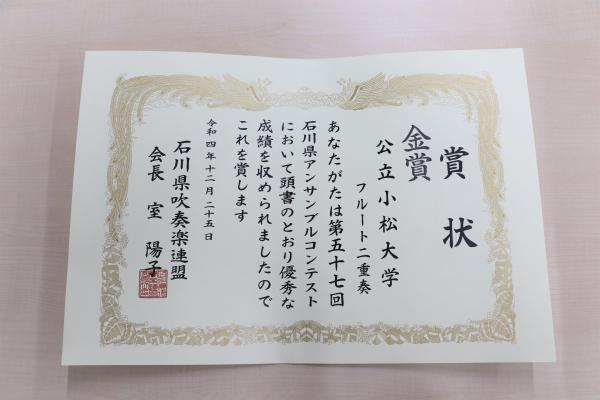 賞状
金賞
公立小松大学
フルート二重奏
あなたがたは第五十七回
石川県アンサンブルコンテスト
において頭書のとおり優秀な
成績を収められましたので
これを賞します
令和四年十二月二十五日
石川県吹奏楽連盟
会長 室 陽子